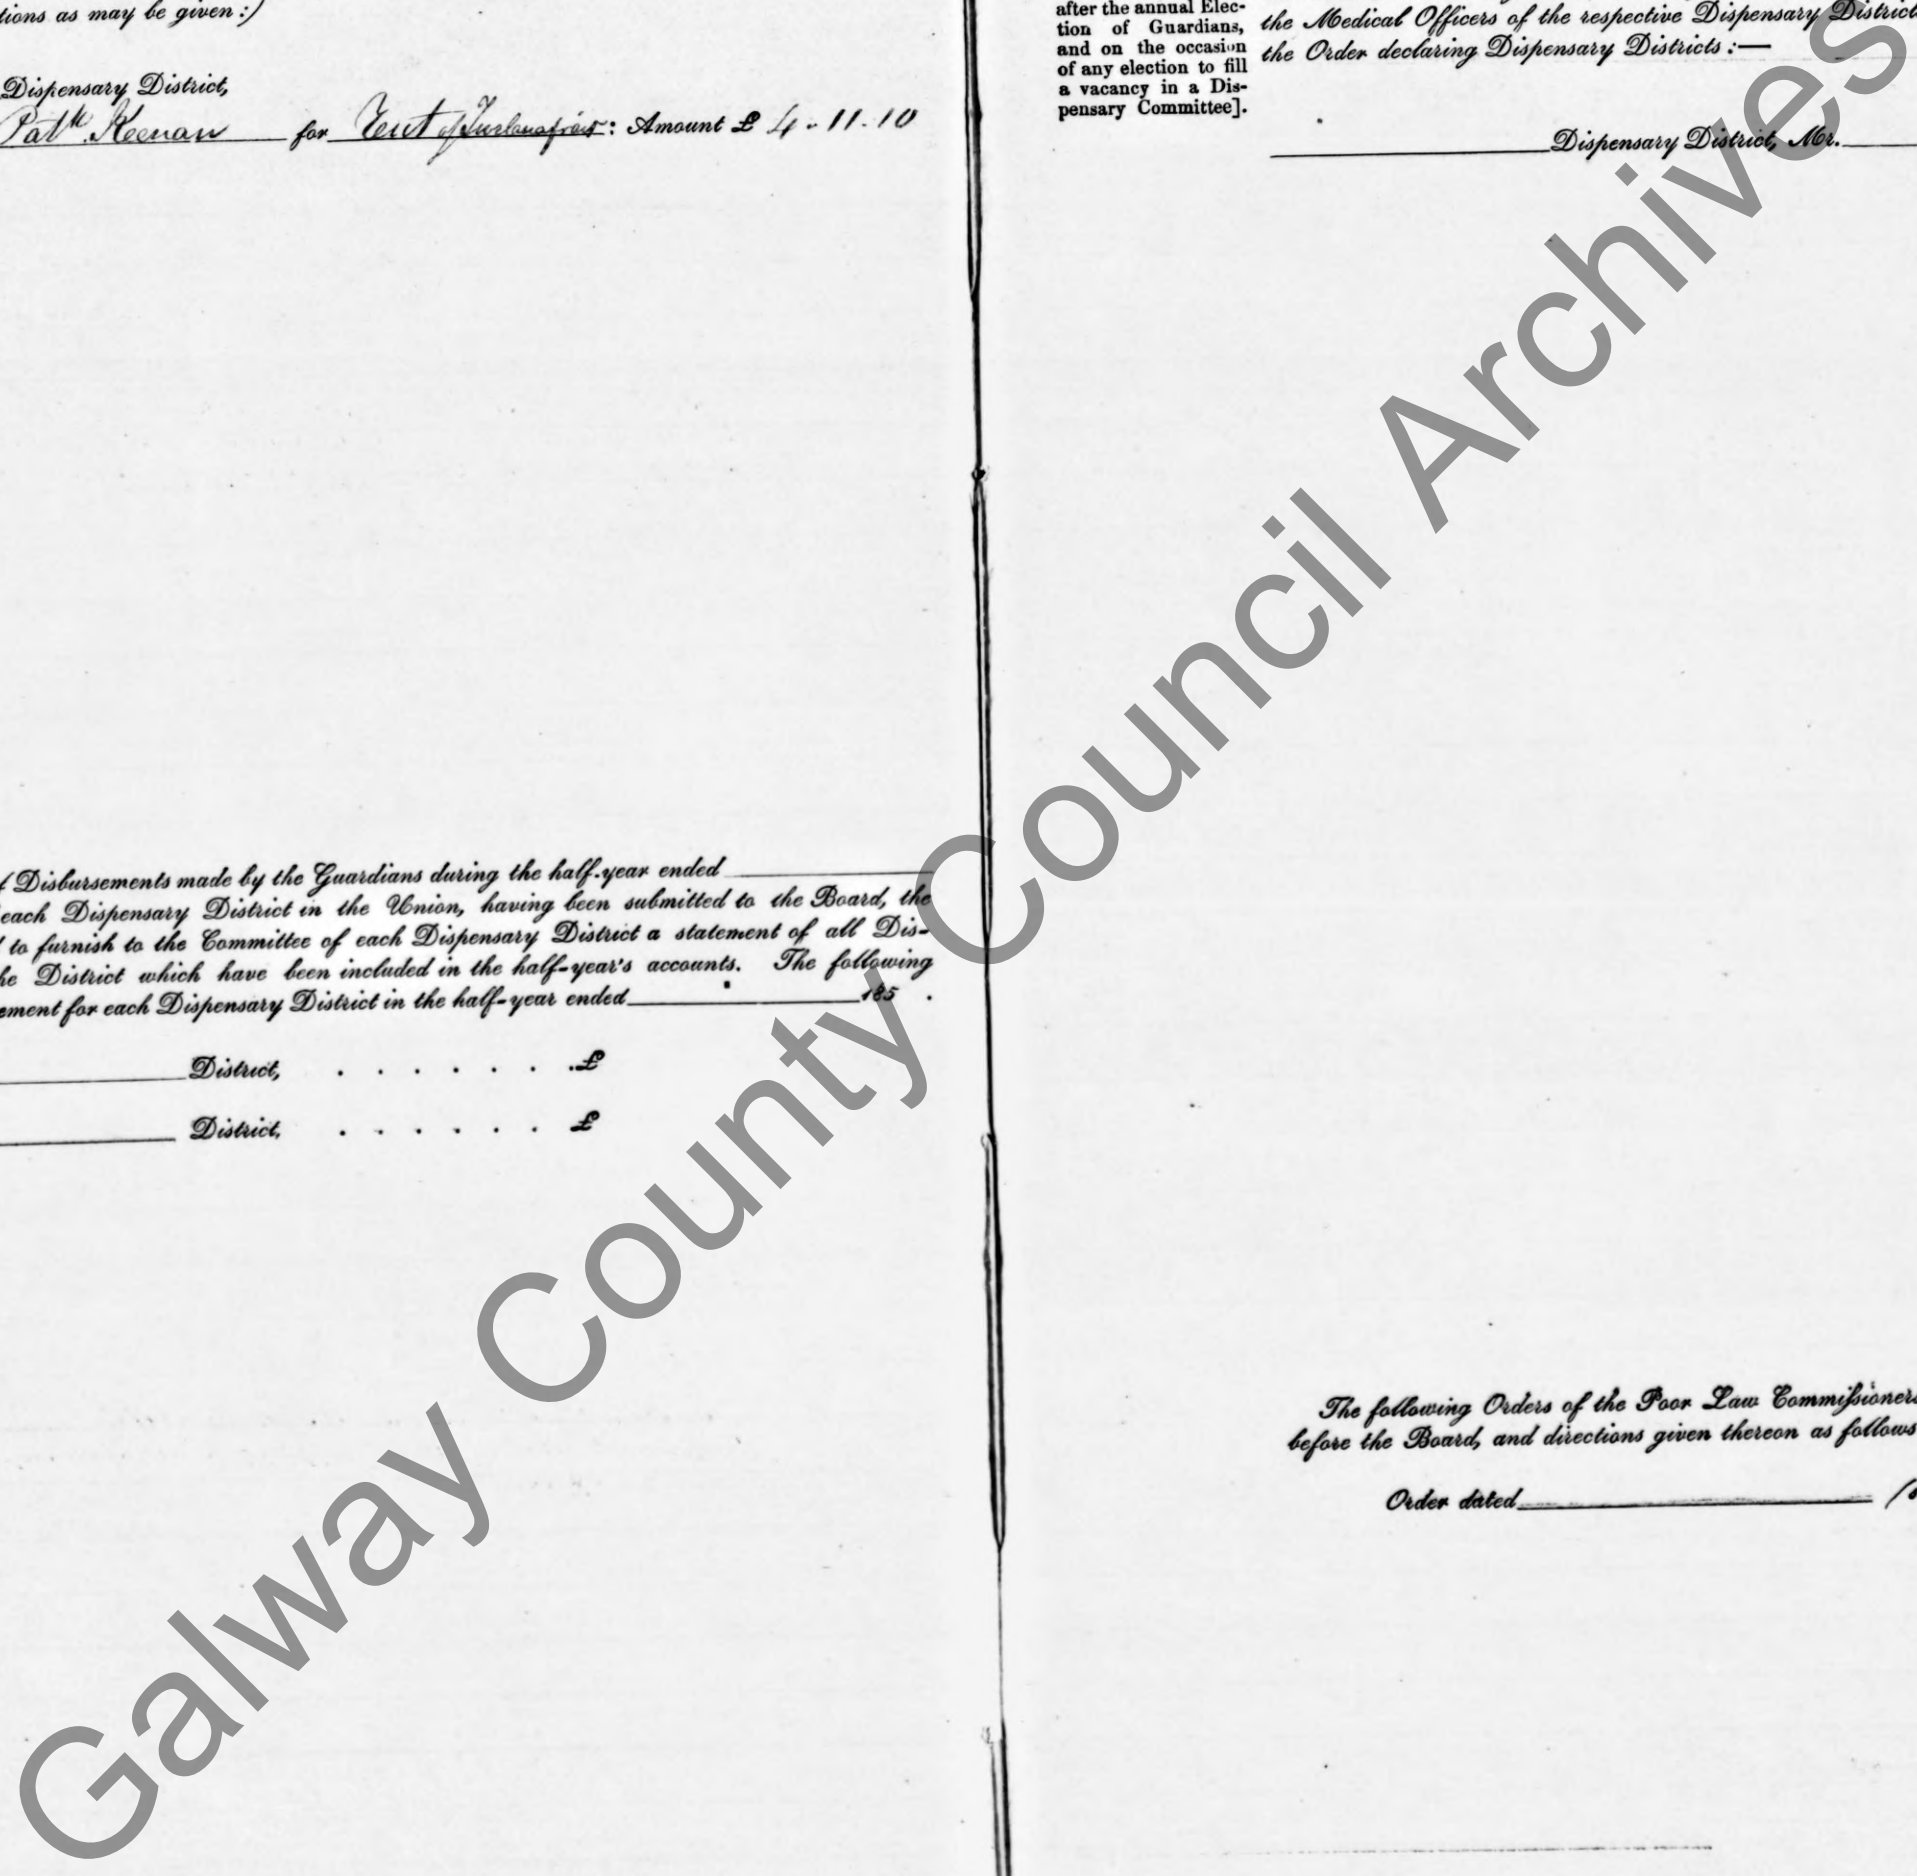 tions as may be given:)
Dispensary District,
Patk. Keenan for Rent of : Amount £ 4-11-10
Disbursements made by the Guardians during the half-year ended
each Dispensary District in the Union, having been submitted to the Board, the
to furnish to the Committee of each Dispensary District a statement of all Dis-
he District which have been included in the half-year's accounts. The following
ement for each Dispensary District in the half-year ended 185 .
District, . . . . . . . £
District, . . . . . . £
after the annual Elec-
tion of Guardians,
and on the occasion
of any election to fill
a vacancy in a Dis-
pensary Committee].
the Medical Officers of the respective Dispensary District
the Order declaring Dispensary Districts :—
Dispensary District, Mr.
The following Orders of the Poor Law Commissioners
before the Board, and directions given thereon as follows
Order dated
Galway County Council Archives